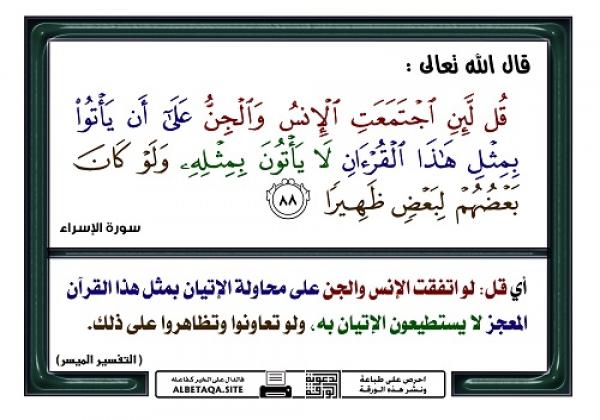 قال الله تعالى :
قُل لَّئِنِ ٱجْتَمَعَتِ ٱلْإِنسُ وَٱلْجِنُّ عَلَىٰٓ أَن يَأْتُوا۟
بِمِثْلِ هَٰذَا ٱلْقُرْءَانِ لَا يَأْتُونَ بِمِثْلِهِۦ وَلَوْ كَانَ
بَعْضُهُمْ لِبَعْضٍ ظَهِيرًا ٨٨
سورة الإسراء
أي قل: لو اتفقت الإنس والجن على محاولة الإتيان بمثل هذا القرآن
المعجز لا يستطيعون الإتيان به، ولو تعاونوا وتظاهروا على ذلك.
(التفسير الميسر)
احرص على طباعة
ونشر هذه الورقة
الدعوية الورقة
فالدال على الخير كفاعله
ALBETAQA.SITE